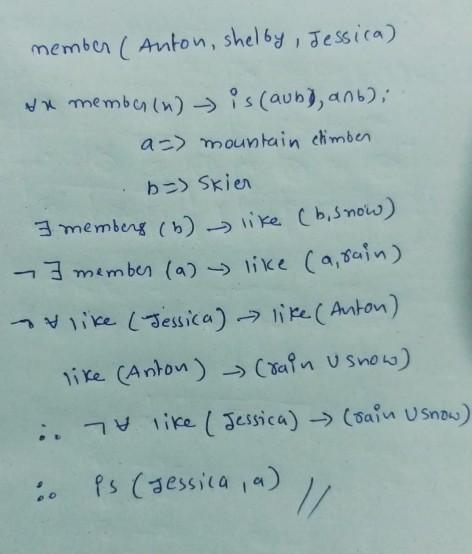 member ( Anton, shelby, Jessica)
∀x member(x) → is (a∪b), a∩b);
a => mountain climber
b => Skier
∃ members (b) → like (b, snow)
¬ ∃ member (a) → like (a, rain)
¬ ∀ like (Jessica) → like (Anton)
like (Anton) → (rain ∪ snow)
∴ ¬ ∀ like ( Jessica) → (rain ∪ snow)
∴ is (Jessica, a) //